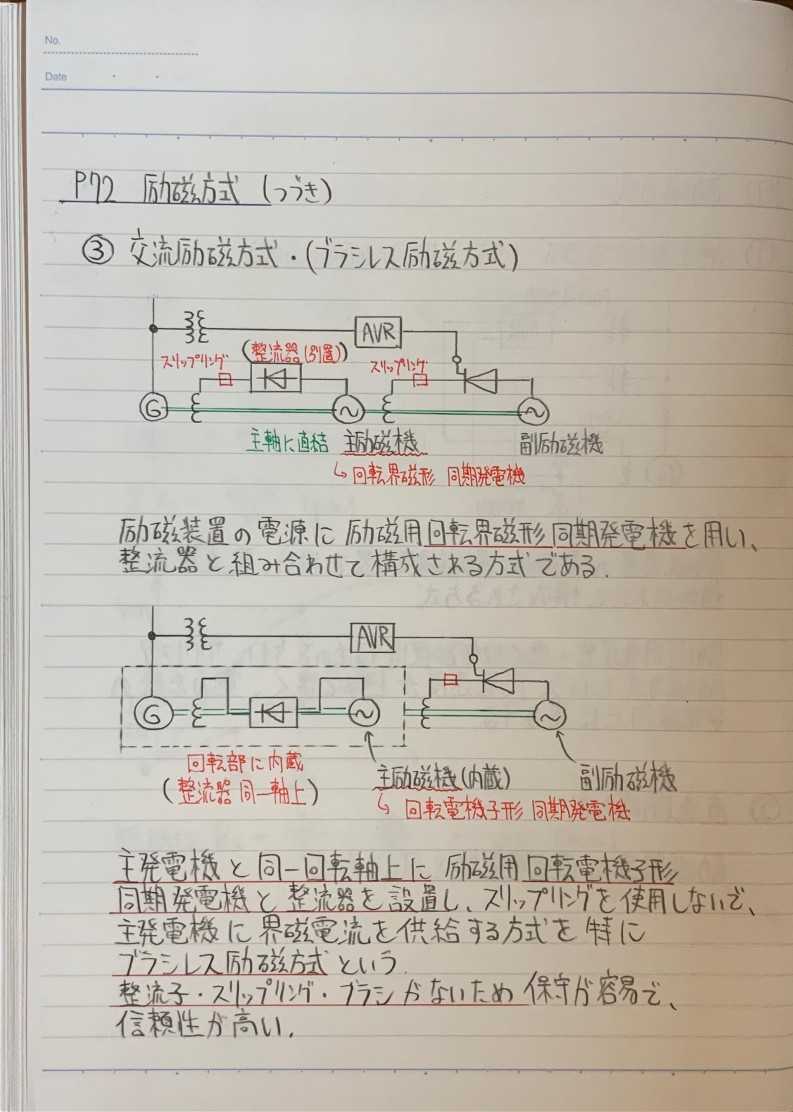 No.
Date
P72 励磁方式 (つづき)
③ 交流励磁方式・(ブラシレス励磁方式)
AVR
スリップリング
(整流器(別置))
スリップリング
G
主軸に直結
主励磁機
副励磁機
↳ 回転界磁形 同期発電機
励磁装置の電源に励磁用回転界磁形同期発電機を用い、
整流器と組み合わせて構成される方式である.
AVR
G
回転部に内蔵
(整流器 同一軸上)
主励磁機(内蔵)
副励磁機
↳ 回転電機子形 同期発電機
主発電機と同一回転軸上に 励磁用回転電機子形
同期発電機と整流器を設置し、スリップリングを使用しないで、
主発電機に界磁電流を供給する方式を特に
ブラシレス励磁方式という.
整流子・スリップリング・ブラシがないため保守が容易で、
信頼性が高い.